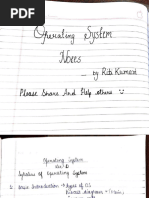 Operating System
Notes
by Riti Kumari
Please Share And Help others
Operating System
Syllabus of Operating System
Basic Introduction → types of OS